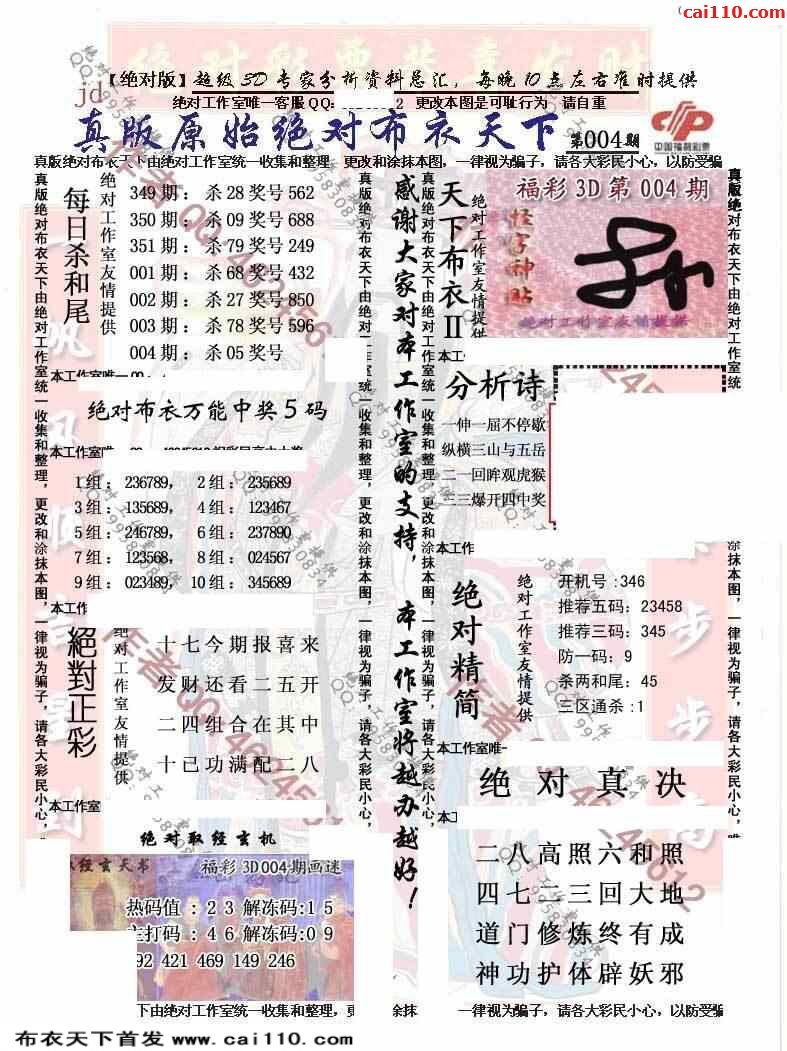 (cai110.com
【绝对版】超级3D专家分析资料总汇，每晚10点左右准时提供
jd
绝对工作室唯一客服QQ: 2 更改本图是可耻行为 请自重
真版原始绝对布衣天下 第004期
中国福利彩票
真版绝对布衣天下由绝对工作室统一收集和整理，更改和涂抹本图，一律视为骗子，请各大彩民小心，以防受骗
每日杀和尾
绝对工作室友情提供
349期：杀28奖号562
350期：杀09奖号688
351期：杀79奖号249
001期：杀68奖号432
002期：杀27奖号850
003期：杀78奖号596
004期：杀05奖号
本工作室唯一
绝对布衣万能中奖5码
1组：236789， 2组：235689
3组：135689， 4组：123467
5组：246789， 6组：237890
7组：123568， 8组：024567
9组：023489， 10组：345689
本工作
絕對正彩
绝对工作室友情提供
十七今期报喜来
发财还看二五开
二四组合在其中
十己功满配二八
本工作室
绝对取经玄机
经玄天书 福彩3D004期画谜
热码值：23解冻码:15
主打码：46解冻码:09
92 421 469 149 246
真版绝对布衣天下由绝对工作室统一收集和整理，更改和涂抹本图，一律视为骗子，请各大彩民小心，
感谢大家对本工作室的支持，本工作室将越办越好！
真版绝对布衣天下由绝对工作室统一收集和整理，更改和涂抹本图，一律视为骗子，请各大彩民小心，
天下布衣II
绝对工作室友情提供
福彩3D第004期
怪字神贴
绝对工作室友情提供
本工
分析诗
一伸一屈不停歇
纵横三山与五岳
二一回眸观虎猴
二三爆开四中奖
本工作
绝对精简
绝对工作室友情提供
开机号:346
推荐五码：23458
推荐三码：345
防一码：9
杀两和尾：45
三区通杀:1
本工作室唯一
绝对真决
本工
二八高照六和照
四七二三回大地
道门修炼终有成
神功护体辟妖邪
下由绝对工作室统一收集和整理，更
涂抹
一律视为骗子，请各大彩民小心，以防受骗
布衣天下首发 www.cai110.com